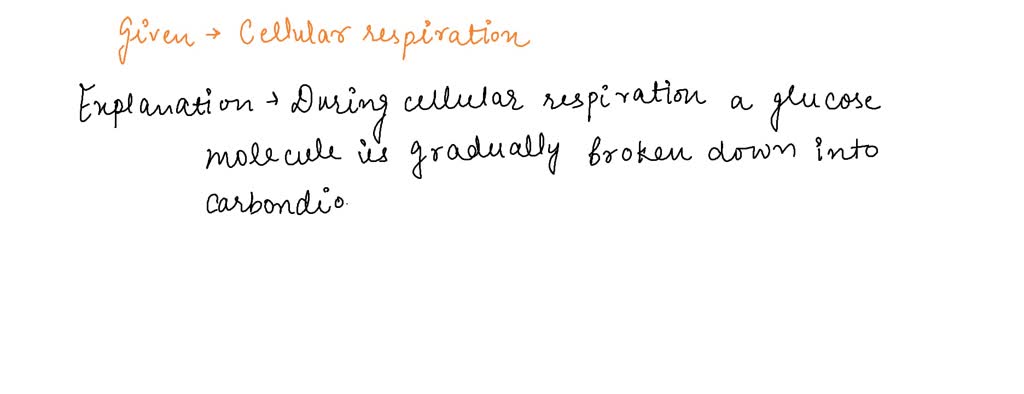 Given → Cellular respiration
Explanation → During cellular respiration a glucose
molecule is gradually broken down into
carbondio